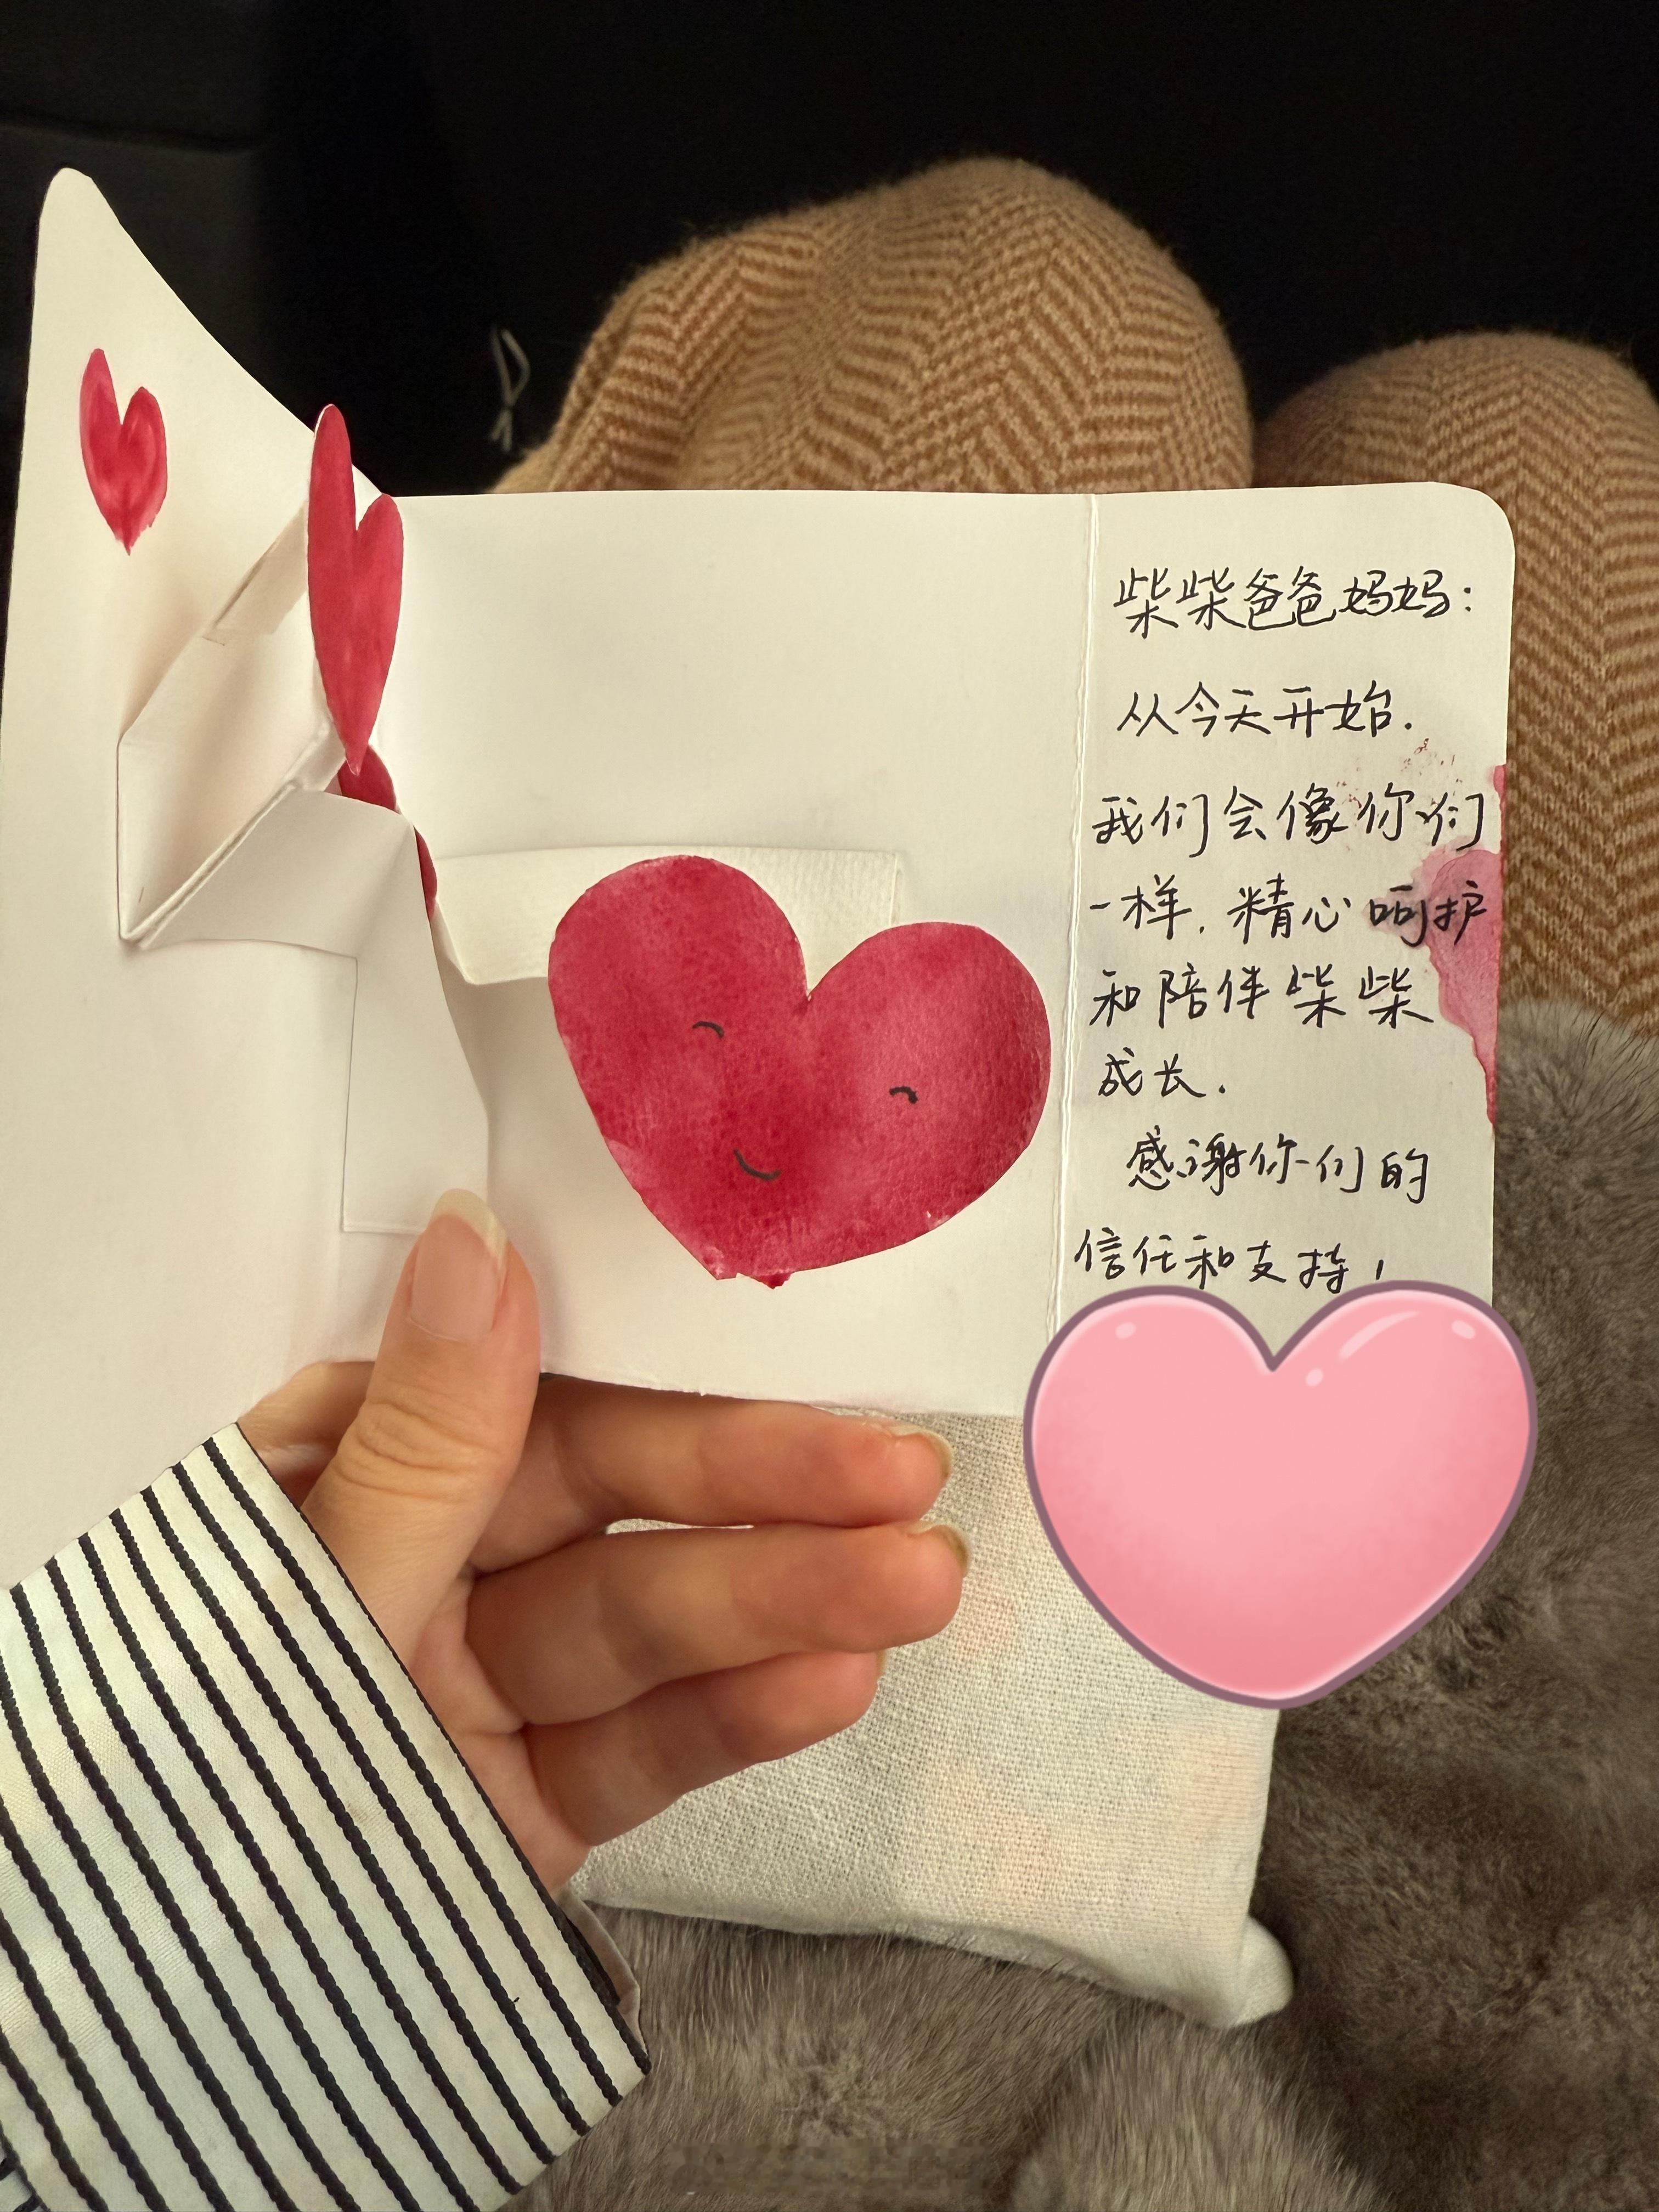 柴柴爸爸妈妈：
从今天开始.
我们会像你们
一样.精心呵护
和陪伴柴柴
成长.
感谢你们的
信任和支持！